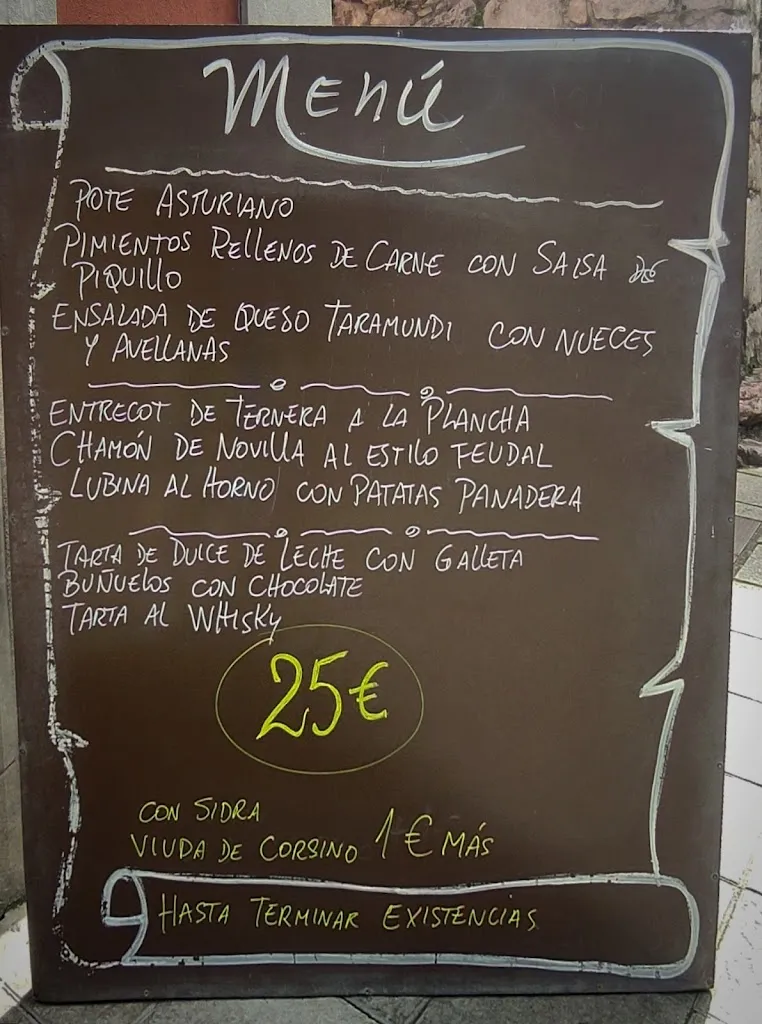 Menú
POTE ASTURIANO
PIMIENTOS RELLENOS DE CARNE CON SALSA DE
PIQUILLO
ENSALADA DE QUESO TARAMUNDI CON NUECES
Y AVELLANAS
ENTRECOT DE TERNERA A LA PLANCHA
CHAMÓN DE NOVILLA AL ESTILO FEUDAL
LUBINA AL HORNO CON PATATAS PANADERA
TARTA DE DULCE DE LECHE CON GALLETA
BUÑUELOS CON CHOCOLATE
TARTA AL WHISKY
25€
CON SIDRA
VIUDA DE CORSINO 1€ MÁS
HASTA TERMINAR EXISTENCIAS